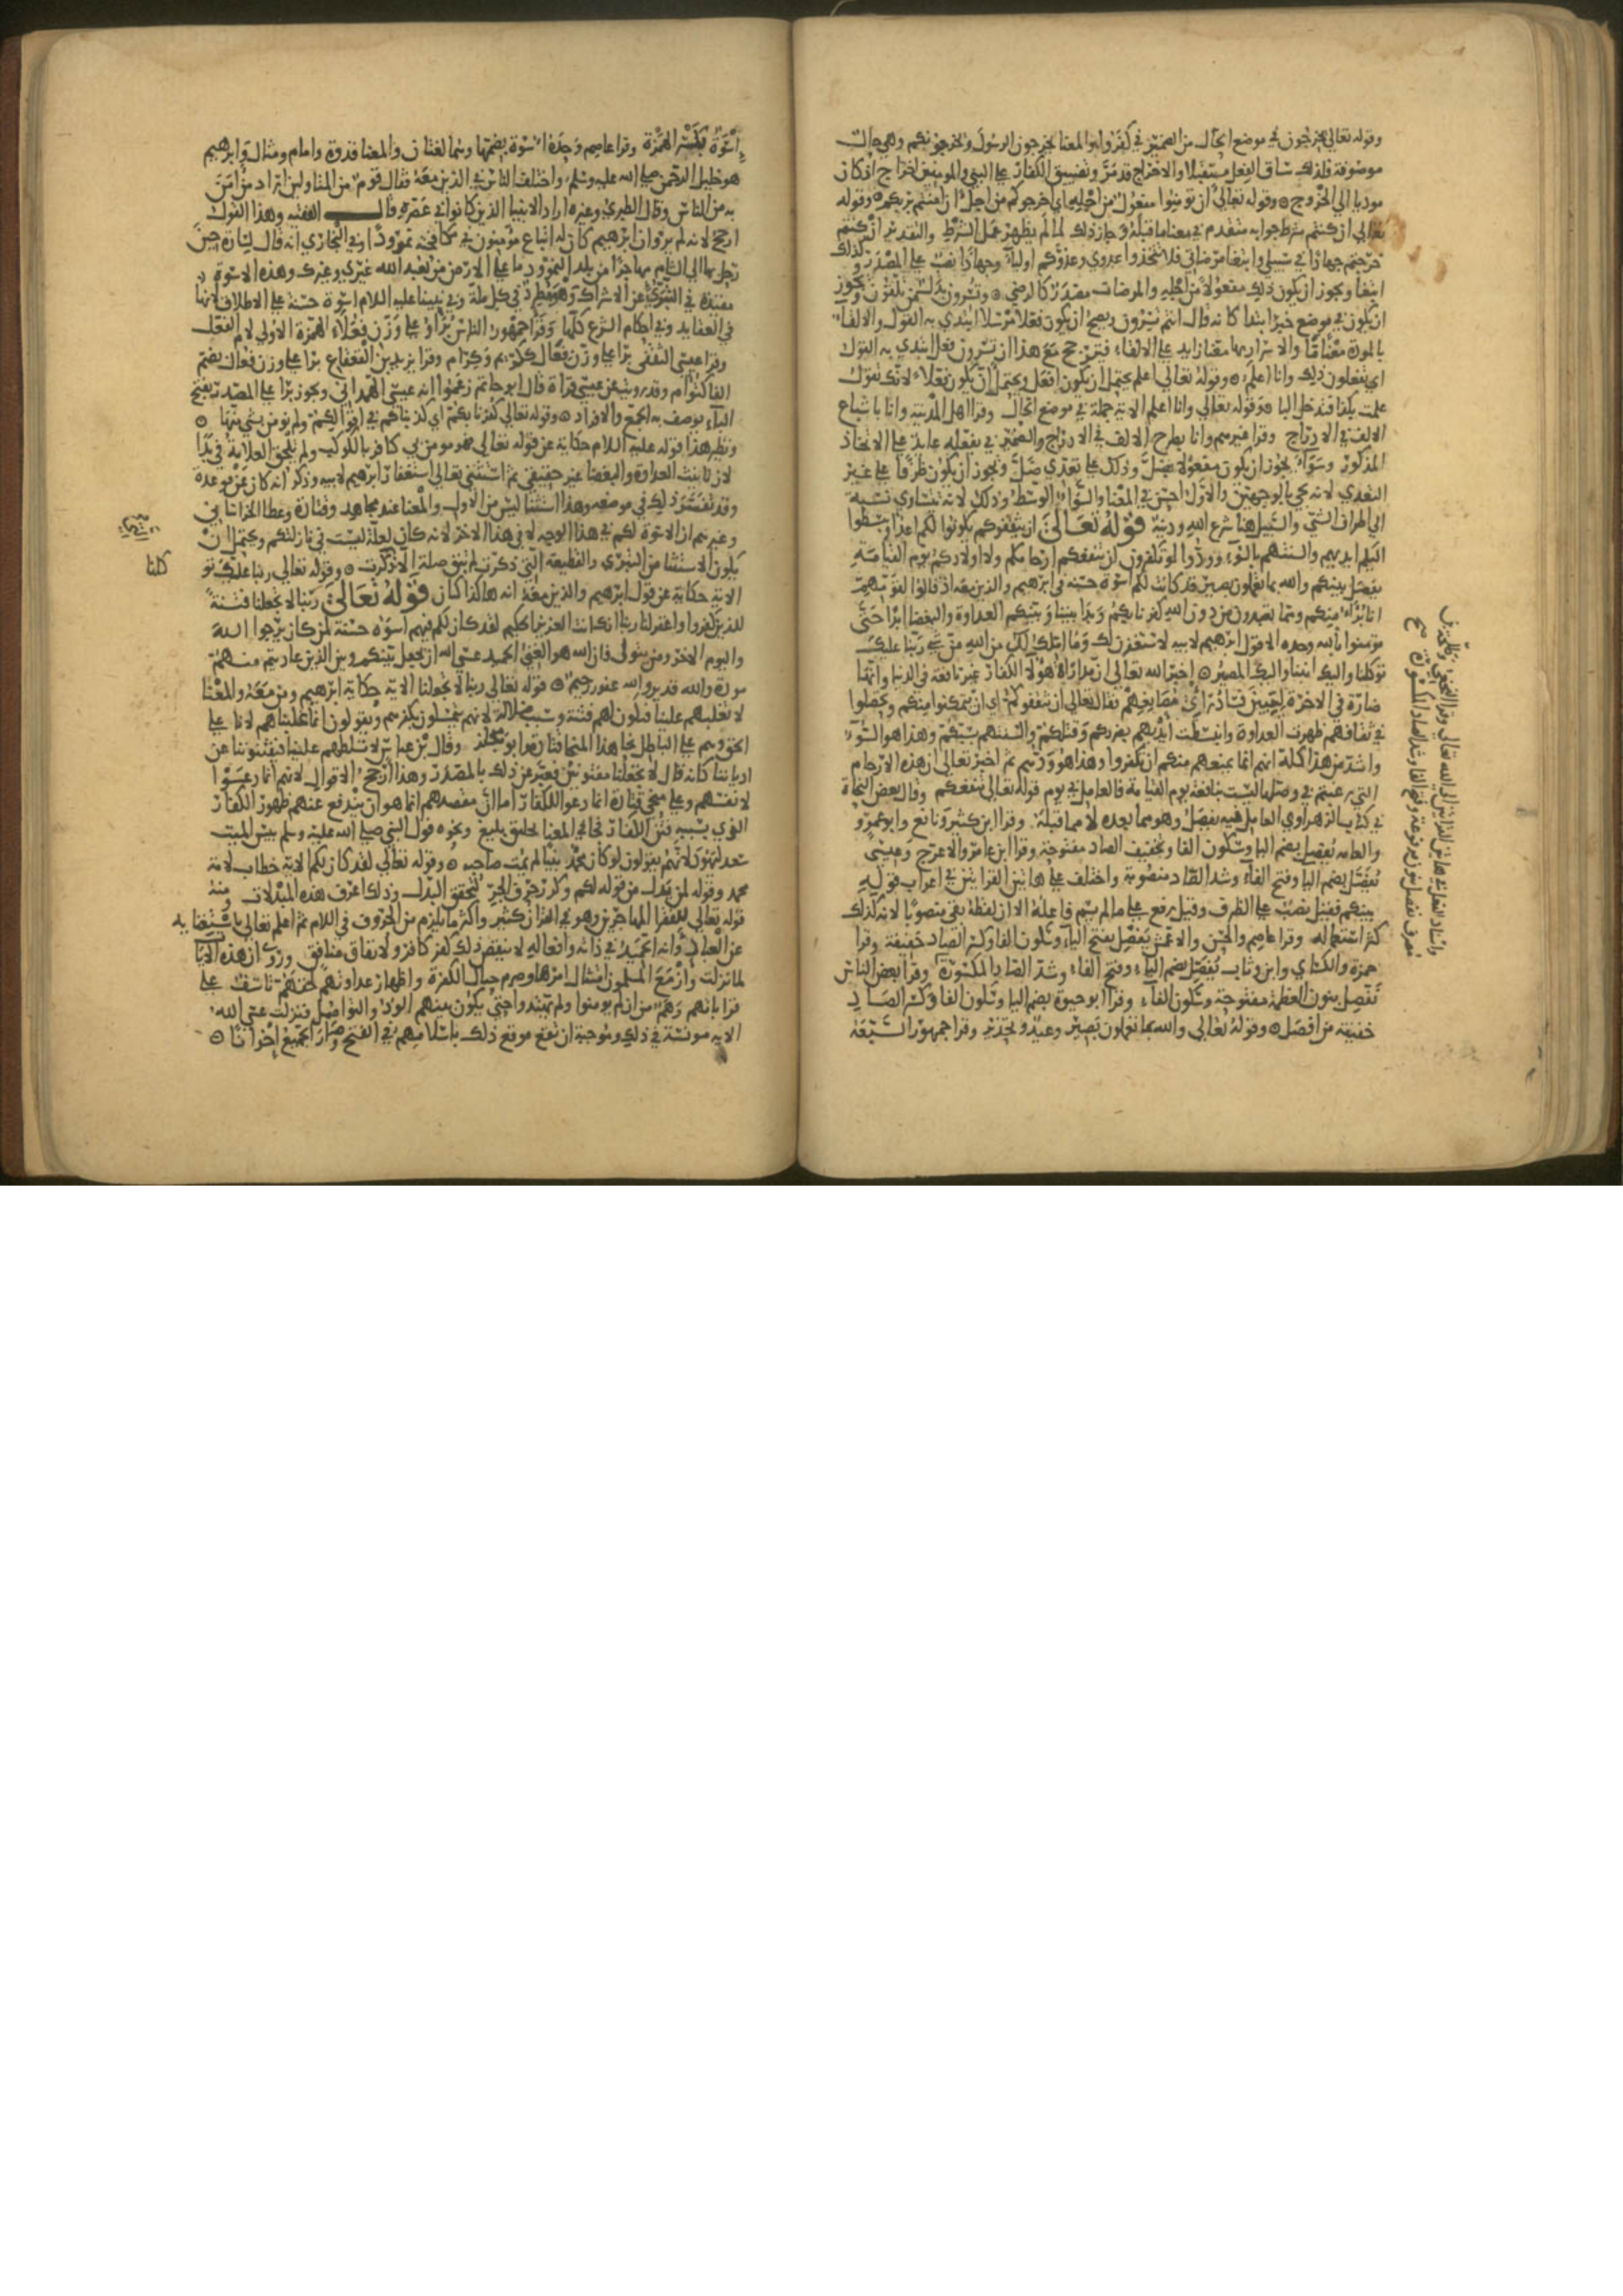 وقوله تعالى يخرجون في موضع الحال من الضمير في كفروا والمعنا يخرجون الرسول ويخرجونكم وهي حال
موصوفة فلذلك ساق الفعل مستقبلا والاخراج قد مر وتضييق الكفار على النبي والمومنين اخراج اذ كان
موديا الى الخروج ۞ وقوله تعالى ان تومنوا مفعول من اجله اي اخرجوكم من اجل ان امنتم بربكم ۞ وقوله
تعالى ان كنتم شرط جوابه متقدم في معنا ما قبله وجاز ذلك لما لم يظهر عمل الشرط والتقدير ان كنتم
خرجتم جهادا في سبيلي وابتغا مرضاتي فلا تتخذوا عدوي وعدوكم اولياء وجهادا نصب على المصدر وكذلك
ابتغا ويجوز ان يكون ذلك مفعولا من اجله والمرضات مصدر كالرضي ۞ وتسرون بدل من تلقون ويجوز
ان يكون في موضع خبر ابتدا كانه قال انتم تسرون ويصح ان يكون فعلا مرسلا ابتدي به القول والالقاء
بالمودة معناها والاسرار بها معنا زايد على الالقاء فيترجح مع هذا ان تسرون فعل ابتدي به القول
اي تفعلون ذلك وانا اعلم ۞ وقوله تعالى اعلم يحتمل ان يكون افعل ويحتمل ان يكون فعلا لانك تقول
علمت بكذا فتدخل البا ۞ وقوله تعالى وانا اعلم الاية جملة في موضع الحال وقرا اهل المدينة وانا باشباع
الالف في الادراج وقرا غيرهم وانا بطرح الالف في الادراج والضمير في يفعله عايد على الاتخاذ
المذكور وسواء يجوز ان يكون مفعولا بضل وذلك على تعدي ضل ويجوز ان يكون ظرفا على غير
التعدي لانه يجي بالوجهين والاول احسن في المعنا والسواء الوسط وذلك لانه تتساوي نسبته
الى اطراف الشي والسبيل هنا شرع الله ودينه قوله تعالى ان يثقفوكم يكونوا لكم اعداء ويبسطوا
اليكم ايديهم والسنتهم بالسوء وودوا لو تكفرون لن تنفعكم ارحامكم ولا اولادكم يوم القيامة
يفصل بينكم والله بما تعملون بصير قد كانت لكم اسوة حسنة في ابرهيم والذين معه اذ قالوا لقومهم
انا براء منكم ومما تعبدون من دون الله كفرنا بكم وبدا بيننا وبينكم العداوة والبغضا ابدا حتى
تومنوا بالله وحده الا قول ابرهيم لابيه لاستغفرن لك وما املك لك من الله من شي ربنا عليك
توكلنا واليك انبنا واليك المصير ۞ اخبر الله تعالى ان مداراة هولا الكفار غير نافعة في الدنيا وانها
ضارة في الاخرة ليبين فساد راي مصانعهم فقال تعالى ان يثقفوكم اي ان يتمكنوا منكم وتحصلوا
في ثقافهم ظهرت العداوة وانبسطت ايديهم بضرركم وقتلكم والسنتهم بسبكم وهذا هو السوء
واشد من هذا كله انهم انما يقنعهم منكم ان تكفروا وهذا هو ودهم ثم اخبر تعالى ان هذه الارحام
التي رغبتم في وصلها ليست بنافعة يوم القيامة فالعامل في يوم قوله تعالى تنفعكم وقال بعض النحاة
في كتاب الزهراوي العامل فيه يفصل وهو مما بعده لا مما قبله وقرا ابن كثير ونافع وابو عمرو
والعامة يفصل بضم اليا وسكون الفا وتخفيف الصاد مفتوحة وقرا ابن عامر والاعرج وعيسى
يفصل بضم اليا وفتح الفاء وشد الصاد منصوبة واختلف على هاتين القراتين في اعراب قوله
بينكم فقيل نصب على الظرف وقيل رفع على ما لم يسم فاعله الا ان لفظه بقي منصوبا لانه كذلك
كثر استعماله وقرا عاصم والحسن والاعمش يفصل بفتح الياء وسكون الفا وكسر الصاد خفيفة وقرا
حمزة والكساي وابن وثاب يفصل بضم الياء وفتح الفاء وشد الصاد المكسورة وقرا بعض الناس
نفصل بنون العظمة مفتوحة وسكون الفاء وقرا ابو حيوة بضم اليا وسكون الفا وكسر الصاد
خفيفة من افصل ۞ وقوله تعالى والله بما تعملون بصير وعيد وتحذير وقرا جمهور السبعة
واسناد الفعل في هاتين القراتين الى الله تعالى وقرا النخعي وطلحة بن
مصرف نفصل بنون مرفوعة وفتح الفا وشد الصاد المكسورة صح
اسوة بكسر الهمزة وقرا عاصم وحده اسوة بضمها وهما لغتان والمعنا قدوة وامام ومثال وابرهيم
هو خليل الرحمن صلى الله عليه وسلم واختلف الناس في الذين معه فقال قوم من المتاولين اراد من امن
به من الناس وقال الطبري وغيره اراد الانبيا الذين كانوا في عصره قال الفقيه وهذا القول
ارجح لانه لم يرو ان ابرهيم كان له اتباع مومنون في مكافحته نمرودا وفي البخاري انه قال لسارة حين
رحل بها الى الشام مهاجرا من بلد النمرود ما على الارض من يعبد الله غيري وغيرك وهذه الاسوة
مقيدة في التبري عن الاشراك وهو مطرد في كل ملة وفي نبينا عليه السلام اسوة حسنة على الاطلاق لانها
في العقايد وفي احكام الشرع كلها وقرا جمهور الناس براؤ على وزن فعلاء الهمزة الاولى لام الفعل
وقرا عيسى الثقفي برا على وزن فعال ككريم وكرام وقرا يزيد بن القعقاع برا على وزن فعال بضم
الفا كتوام وقد رويت عن عيسى قراة قال ابو حاتم زعموا انه عيسى الهمداني ويجوز برا على المصدر بفتح
الباء يوصف به الجمع والافراد ۞ وقوله تعالى كفرنا بكم اي كذبناكم في اقوالكم ولم نومن بشي منها ۞
ونظير هذا قوله عليه السلام حكاية عن قوله تعالى فهو مومن بي كافر بالكوكب ولم تلحق العلامة في بدا
لان تانيث العداوة والبغضا غير حقيقي ثم استثنى تعالى استغفار ابرهيم لابيه وذكر انه كان عن موعدة
وقد تفسر ذلك في موضعه وهذا استثنا ليس من الاول والمعنا عند مجاهد وقتادة وعطا الخراساني
وغيرهم ان الاسوة لكم في هذا الوجه لا في هذا الاخر لانه كان لعلة ليست في نازلتكم ويحتمل ان
يكون الاستثنا من التبري والقطيعة التي ذكرت لم تبق صلة الا كذا ۞ وقوله تعالى ربنا عليك تو
كلنا
الاية حكاية عن قول ابرهيم والذين معه انه هاكذا كان قوله تعالى ربنا لا تجعلنا فتنة
للذين كفروا واغفر لنا ربنا انك انت العزيز الحكيم لقد كان لكم فيهم اسوة حسنة لمن كان يرجوا الله
واليوم الاخر ومن يتولى فان الله هو الغني الحميد عسى الله ان يجعل بينكم وبين الذين عاديتم منهم
مودة والله قدير والله غفور رحيم ۞ قوله تعالى ربنا لا تجعلنا الاية حكاية ابرهيم ومن معه والمعنا
لا تغلبهم علينا فنكون لهم فتنة وسبب ضلالة لانهم يتمسكون بكفرهم ويقولون انما غلبناهم لانا على
الحق وهم على الباطل نحا هذا المنحا قتادة وابو مجلز وقال ابن عباس لا تسلطهم علينا فيفتنونا عن
ادياننا كانه قال لا تجعلنا مفتونين فعبر عن ذلك بالمصدر وهذا ارجح الاقوال لانهم انما دعوا
لانفسهم وعلى منحى قتادة انما دعوا للكفار اما ان مقصدهم انما هو ان يندفع عنهم ظهور الكفار
الذي بسببه فتن الكفار فجا في المعنا تحليق بليغ ونحوه قول النبي صلى الله عليه وسلم بيس الميت
سعد ليهود لانهم يقولون لو كان محمد نبيا لم يمت صاحبه ۞ وقوله تعالى لقد كان لكم الاية خطاب لامة
محمد وقوله لمن بدل من قوله لكم وكرر حرف الجر ليتحقق البدل وذلك عرف هذه المبدلات ومنه
قوله تعالى للفقرا المهاجرين وهو في القران كثير واكثر ما يلزم من الحروف في اللام ثم اعلم تعالى باستغنايه
عن العباد وانه الحميد في ذاته وافعاله لا ينقص ذلك كفر كافر ولا نفاق منافق وروي ان هذه الاية
لما نزلت وازمع المسلمون امتثال امرها وصرم حبال الكفرة واظهار عداوتهم لحقهم تاسف على
قراباتهم وهمٌ من ان لم يومنوا ولم يهتدوا حتى يكون بينهم الود والتواصل فنزلت عسى الله
الاية مونسة في ذلك ومرجية ان يقع موقع ذلك باسلامهم في الفتح وصار الجميع اخوانا ۞